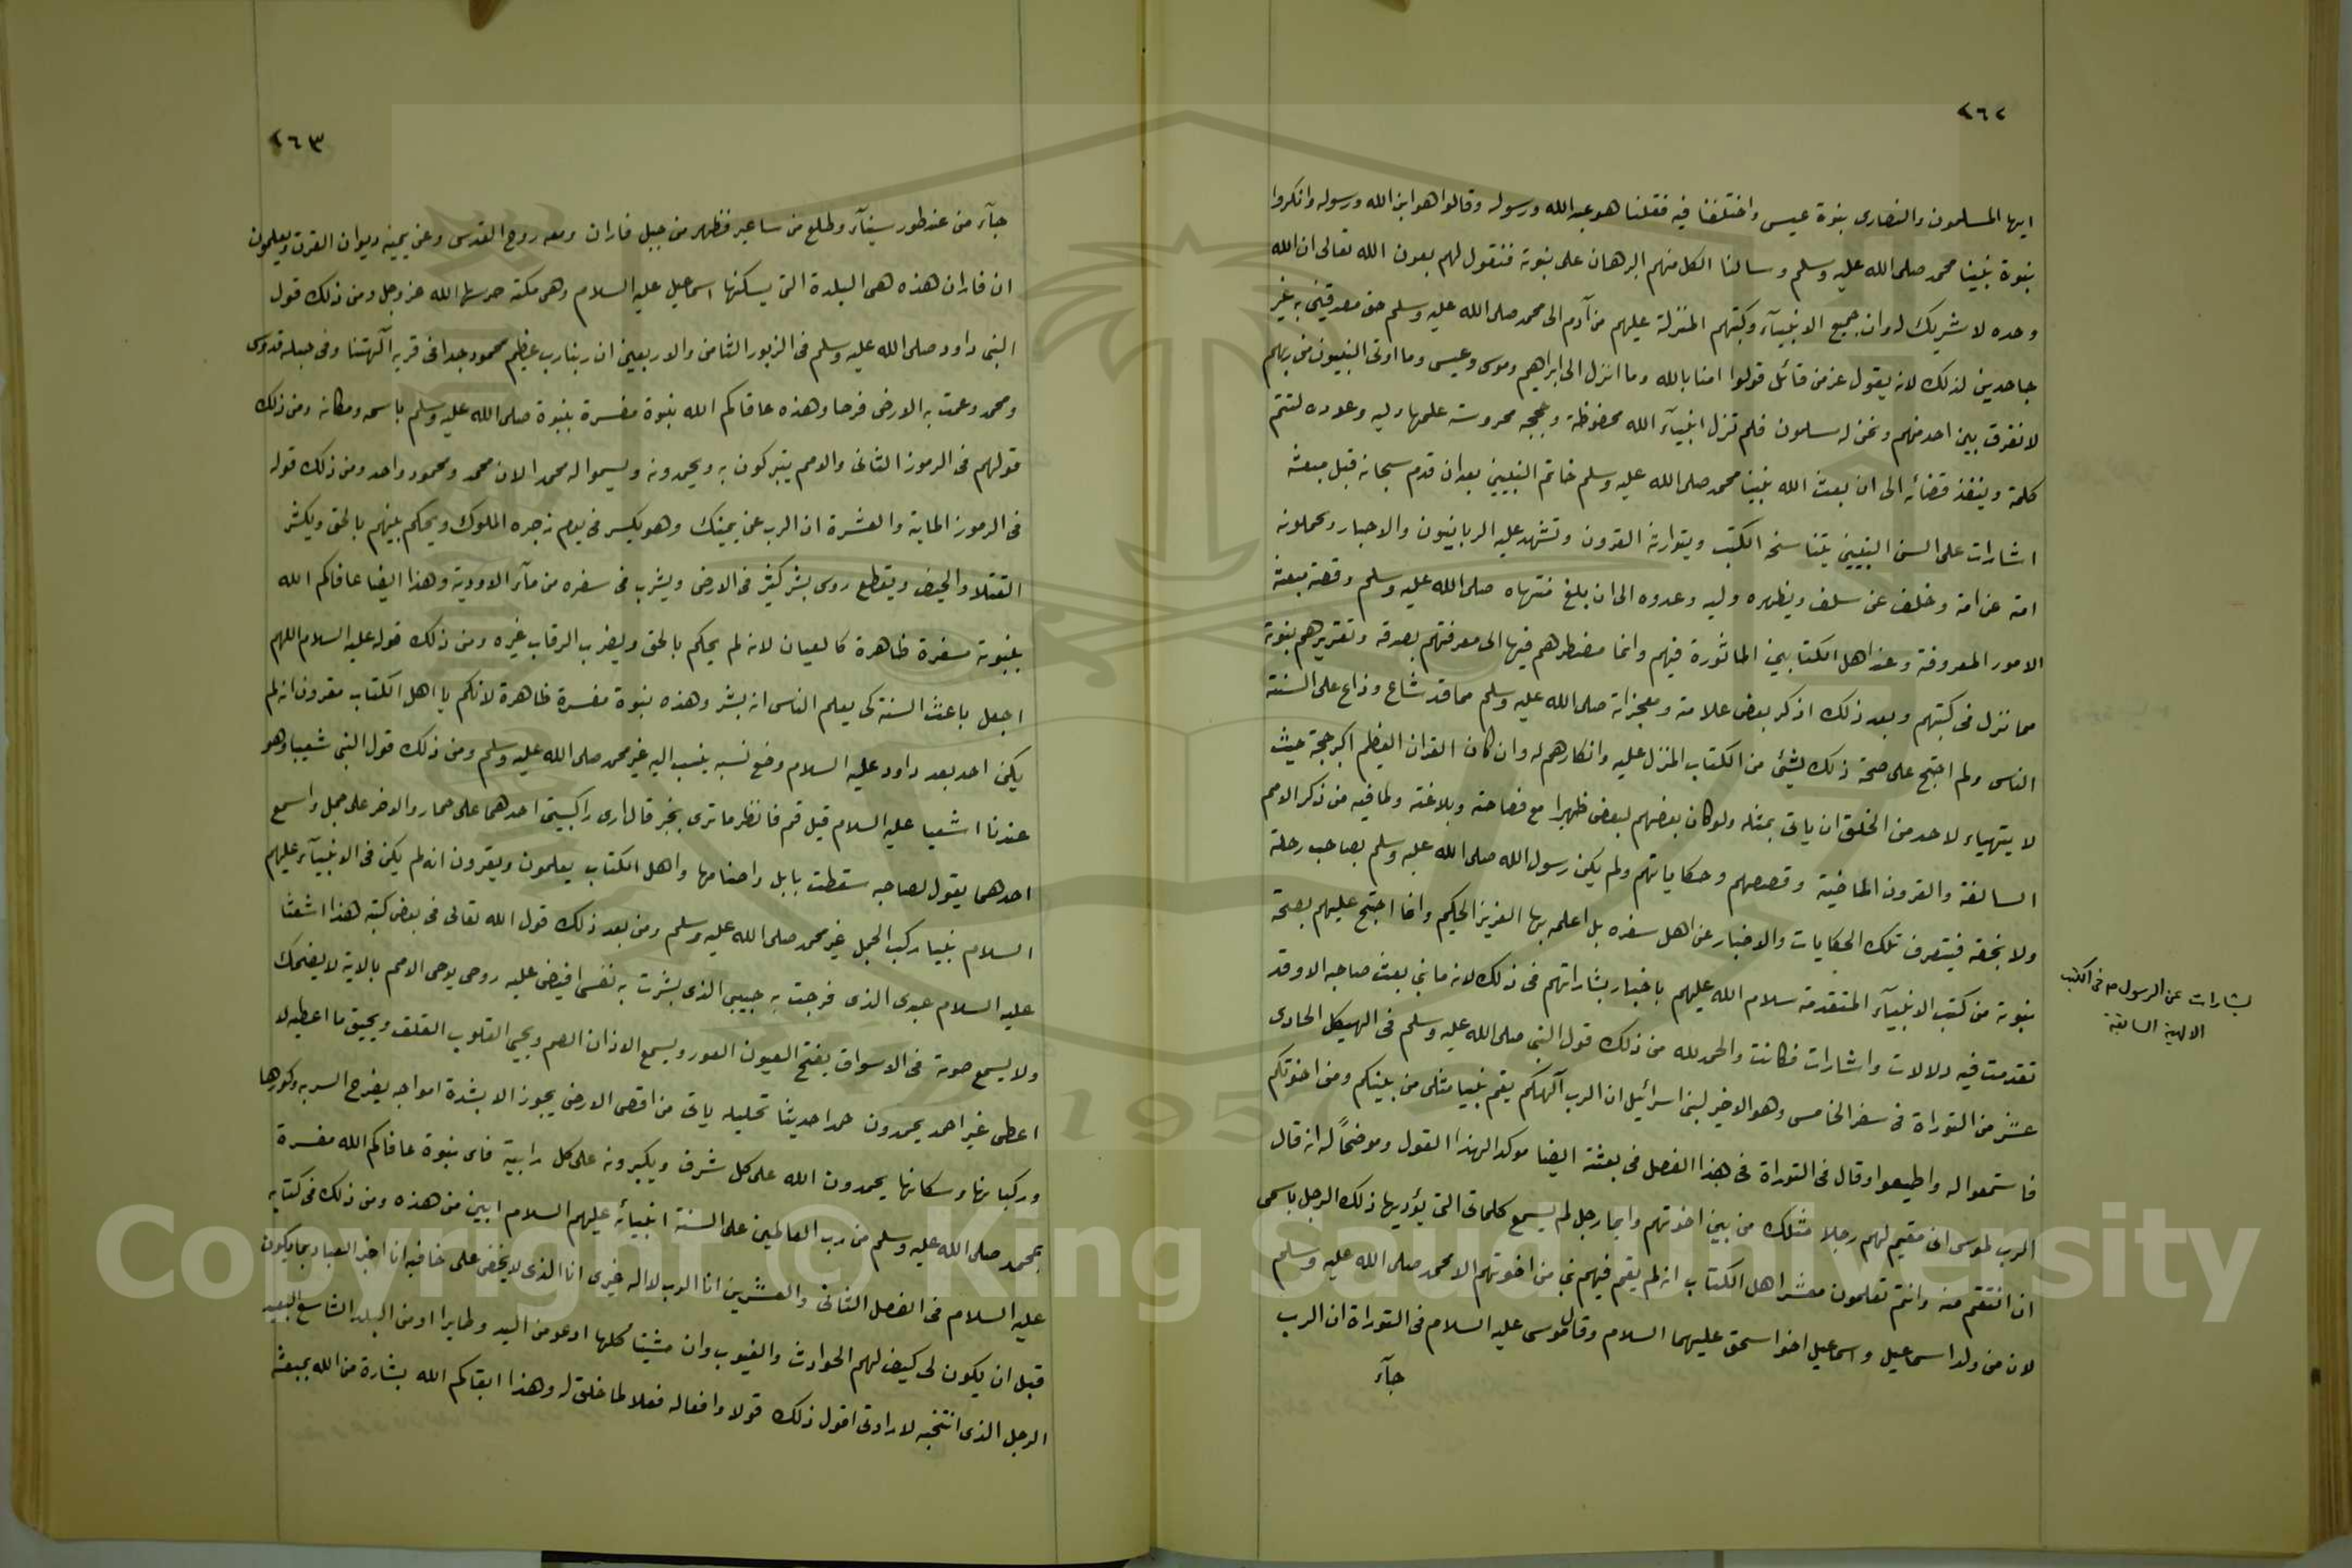 ٢٦٢
ايها المسلمون والنصارى بنوة عيسى واختلفنا فيه فقلنا هو عبد الله ورسوله وقالوا هو ابن الله ورسوله وانكروا
بنوة نبينا محمد صلى الله عليه وسلم وسالنا الكل منهم البرهان على نبوته فنقول لهم بعون الله تعالى ان الله
وحده لا شريك له وان جميع الانبيآء وكتبهم المنزلة عليهم من آدم الى محمد صلى الله عليه وسلم حق مصدقين به غير
جاحدين لذلك لانه يقول عز من قائل قولوا امنا بالله وما انزل الى ابراهيم وموسى وعيسى وما اوتى النبيون من ربهم
لا نفرق بين احد منهم ونحن له مسلمون فلم تزل انبيآء الله محفوظة وحججه محروسة وعوده لتتم
كلمة وينفذ قضائه الى ان بعث الله نبينا محمد صلى الله عليه وسلم خاتم النبيين بعد ان قدم سبحانه قبل مبعثه
اشارات على السن النبيين يتناسخه الكتب ويتوارثه القرون وتشهد عليه الربانيون والاحبار ويحملونه
امة عن امة وخلف عن سلف ويظهره وليه وعدوه الى ان بلغ منتهاه صلى الله عليه وسلم وقصة مبعثه
الامور المعروفة وعند اهل الكتابين الماثورة فيهم وانما مضطرهم فيها الى معرفتهم بصدقه وتقريرهم بنبوته
مما نزل فى كتبهم وبعد ذلك اذكر بعض علامته ومعجزاته صلى الله عليه وسلم مما قد شاع وذاع على السنة
الناس ولم احتج على صحة ذلك بشئ من الكتاب المنزل عليه وانكارهم له وان كان القران العظيم اكبر حجة حيث
لا يتهياء لاحد من الخلق ان ياتى بمثله ولو كان بعضهم لبعض ظهيرا مع فصاحته وبلاغته ولما فيه من ذكر الامم
السالفة والقرون الماضية وقصصهم وحكاياتهم ولم يكن رسول الله صلى الله عليه وسلم بصاحب رحلة
ولا نجعة فيتعرف تلك الحكايات والاخبار عن اهل سفره بل اعلمه بها العزيز الحكيم وانما احتج عليهم بصحة
نبوته من كتب الانبيآء المتقدمة سلام الله عليهم باخبار بشاراتهم فى ذلك لانه ما نبى بعث صاحبه الا وقد
تقدمت فيه دلالات واشارات فكانت والحمد لله من ذلك قول النبى صلى الله عليه وسلم فى الهيكل الحادى
عشر من التوراة فى سفر الخامس وهو الاخير لبنى اسرائيل ان الرب آلهكم يقم نبيا مثلى من بينكم ومن اخوتكم
فاستمعوا له واطيعوا وقال فى التوراة فى هذا الفصل فى بعثته ايضا موكدا لهذا القول وموضحًا له انه قال
الرب لموسى انى مقيم لهم رجلا مثلك من بين اخوتهم وايما رجل لم يسمع كلماتى التى يؤديها ذلك الرجل باسمى
ان انتقم منه وانتم تعلمون معشر اهل الكتاب انه لم يقم فيهم نبى من اخوتهم الا محمد صلى الله عليه وسلم
لان من ولد اسماعيل واسماعيل اخو اسحق عليهما السلام وقال موسى عليه السلام فى التوراة ان الرب
جآء
بشارات عن الرسول ص فى الكتب
الالهية السابقة
٢٦٣
جآء من عند طور سينآء وطلع من ساعير فظهر من جبل فاران ومعه روح القدس وعن يمينه ديوان القرت ويعلمون
ان فاران هذه هى البلدة التى يسكنها اسماعيل عليه السلام وهى مكة حرسها الله عز وجل ومن ذلك قول
النبى داود صلى الله عليه وسلم فى الزبور الثامن والاربعين ان ربنا رب عظيم محمود جدا فى قرية آلهتنا وفى جبله قدوس
ومحمد وعمت به الارض فرحا وهذه عافاكم الله نبوة مفسرة بنبوة صلى الله عليه وسلم باسمه ومكانه ومن ذلك
قولهم فى الرموز الثانى والامم يتبركون به ويحمدونه ويسموا له محمد الان محمد ومحمود واحد ومن ذلك قوله
فى الرموز الماية والعشرة ان الرب عن يمينك وهو يكسر فى يوم زجره الملوك ويحكم بينهم بالحق ويكثر
القتلا والجيف ويقطع روس بشر كثير فى الارض ويشرب فى سفره من مآء الاودية وهذا ايضا عافاكم الله
بنبوته مسفرة ظاهرة كالعيان لانه لم يحكم بالحق ويضرب الرقاب غيره ومن ذلك قوله عليه السلام اللهم
اجعل باعث السنة كى يعلم الناس انه بشر وهذه نبوة مفسرة ظاهرة لانكم يا اهل الكتاب مقرون انه لم
يكن احد بعد داود عليه السلام وضع نسبه ينسب اليه غير محمد صلى الله عليه وسلم ومن ذلك قول النبى شعيبا وهو
عندنا اشعيا عليه السلام قيل قم فانظر ما ترى بخبر قال ارى راكبين احدهما على حمار والاخر على جمل واسمع
احدهما يقول لصاحبه سقطت بابل واصنامها واهل الكتاب يعلمون ويقرون انه لم يكن فى الانبيآء عليهم
السلام نبيا ركب الجمل غير محمد صلى الله عليه وسلم ومن بعد ذلك قول الله تعالى فى بعض كتبه هذا اشعثا
عليه السلام عبدى الذى فرجت به حبيبى الذى بشرت به نفسى افيض عليه روحى يوحى الامم بالاية لا يضحك
ولا يسمع صوته فى الاسواق يفتح العيون العور ويسمع الاذان الصم ويحيى القلوب الغلف ما اعطيه لا
اعطى غير احمد يحمدون حمدا حديثا تحليله ياتى من اقصى الارض يجوز الا بشدة امواجه يفرح السربه وكورها
وركبانها وسكانها يحمدون الله على كل شرف ويكبرونه على كل رابية فاى نبوة عافاكم الله مفسرة
بمحمد صلى الله عليه وسلم من رب العالمين على السنة انبيائه عليهم السلام ابين من هذه ومن ذلك فى كتابه
عليه السلام فى الفصل الثانى والعشرين انا الرب لا اله غيرى انا الذى لا يخفى على خافيه انا اخبر العباد بما يكون
قبل ان يكون لى كيف لهم الحوادث والغيوب وان مشيتا كلها ادعو من اليد وطايرا او من البلد الشاسع البعيد
الرجل الذى انتخبه لارادتى اقول ذلك قولا وافعاله فعلا لما خلق له وهذا ابقاكم الله بشارة من الله بمبعثه
Copyright © King Saud University
1957